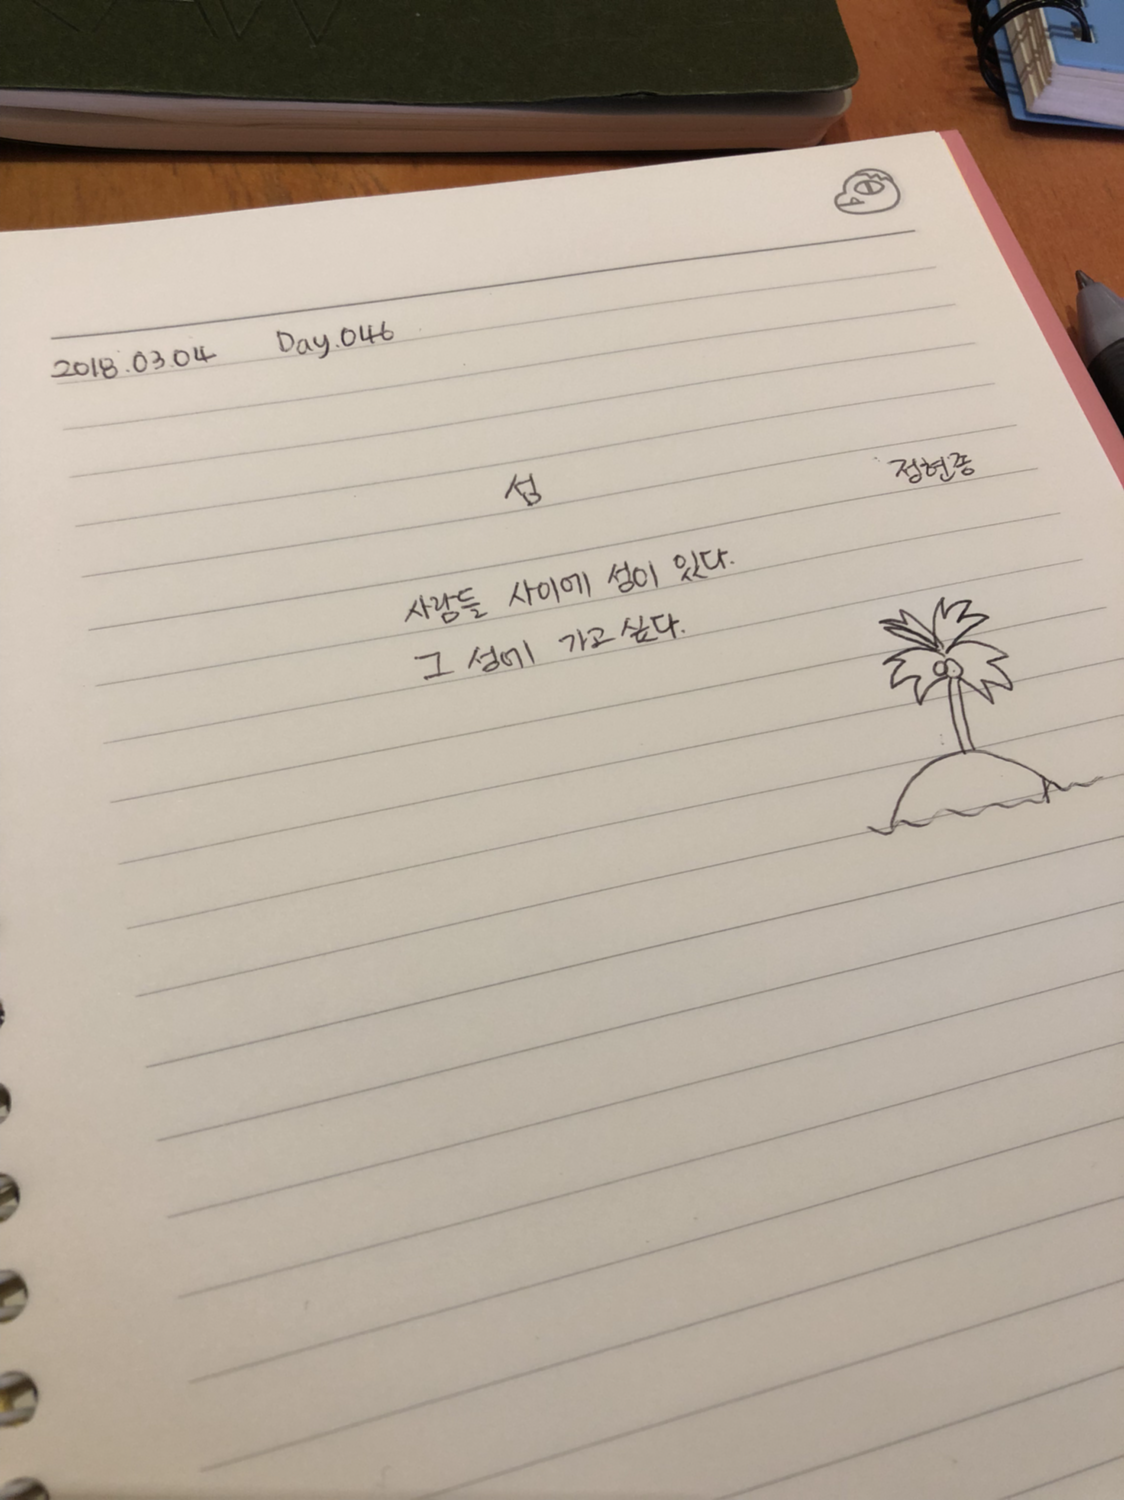 2018.03.04 Day.046
섬
정현종
사람들 사이에 섬이 있다.
그 섬에 가고 싶다.